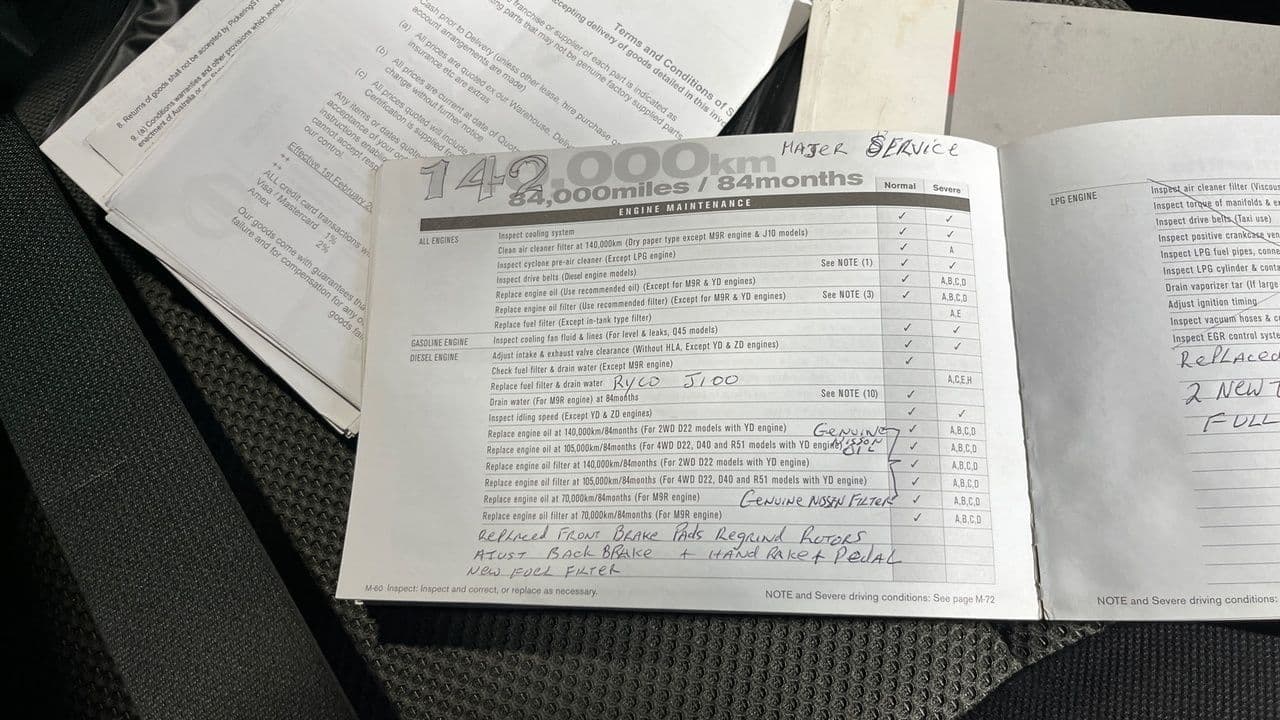 8. Returns of goods shall not be accepted by Pickering's
9. (a) Conditions warranties and other provisions which
ernment of Australia or
Terms and Conditions of S
ccepting delivery of goods detailed in this inv
franchise or supplier of each part is indicated as
ing parts that may not be genuine factory supplied parts.
Cash prior to Delivery (unless other lease, hire purchase o
account arrangements are made)
(a) All prices are quoted ex our Warehouse. Deliv
insurance etc are extras.
(b) All prices are current at date of Quot
change without further notice
(c) All prices quoted will include
Certification is supplied
Any items or dates quot
acceptance of your o
instructions enabling
cannot accept res
our control.
Effective 1st February 2
++ ALL credit card transactions w
++ Visa / Mastercard 1%
Amex 2%
Our goods come with guarantees tha
failure and for compensation for any o
goods fai
142,000km
MAJER SERVICE
84,000miles / 84months
Normal Severe
ENGINE MAINTENANCE
ALL ENGINES Inspect cooling system ✓ ✓
Clean air cleaner filter at 140,000km (Dry paper type except M9R engine & J10 models) ✓ ✓
Inspect cyclone pre-air cleaner (Except LPG engine) ✓ A
Inspect drive belts (Diesel engine models) See NOTE (1) ✓ ✓
Replace engine oil (Use recommended oil) (Except for M9R & YD engines) A,B,C,D
Replace engine oil filter (Use recommended filter) (Except for M9R & YD engines) See NOTE (3) ✓ A,B,C,D
Replace fuel filter (Except in-tank type filter) A,E
GASOLINE ENGINE Inspect cooling fan fluid & lines (For level & leaks, Q45 models) ✓ ✓
DIESEL ENGINE Adjust intake & exhaust valve clearance (Without HLA, Except YD & ZD engines) ✓ ✓
Check fuel filter & drain water (Except M9R engine) ✓
Replace fuel filter & drain water RYCO J100 A,C,E,H
Drain water (For M9R engine) at 84months See NOTE (10) ✓
Inspect idling speed (Except YD & ZD engines) ✓ ✓
Replace engine oil at 140,000km/84months (For 2WD D22 models with YD engine) GENUINE ✓ A,B,C,D
Replace engine oil at 105,000km/84months (For 4WD D22, D40 and R51 models with YD engine) NISSON OIL ✓ A,B,C,D
Replace engine oil filter at 140,000km/84months (For 2WD D22 models with YD engine) ✓ A,B,C,D
Replace engine oil filter at 105,000km/84months (For 4WD D22, D40 and R51 models with YD engine) ✓ A,B,C,D
Replace engine oil at 70,000km/84months (For M9R engine) GENUINE NISSEN FILTER ✓ A,B,C,D
Replace engine oil filter at 70,000km/84months (For M9R engine) ✓ A,B,C,D
REPLACED FRONT BRAKE PADS REGRIND ROTORS
AJUST BACK BRAKE + HAND BRAKE + PEDAL
NEW FUEL FILTER
M-60 Inspect: Inspect and correct, or replace as necessary.
NOTE and Severe driving conditions: See page M-72
LPG ENGINE Inspect air cleaner filter (Viscous
Inspect torque of manifolds & e
Inspect drive belts (Taxi use)
Inspect positive crankcase ven
Inspect LPG fuel pipes, conne
Inspect LPG cylinder & cont
Drain vaporizer tar (If large
Adjust ignition timing
Inspect vacuum hoses & c
Inspect EGR control syste
REPLACED
2 NEW T
FULL
NOTE and Severe driving conditions: